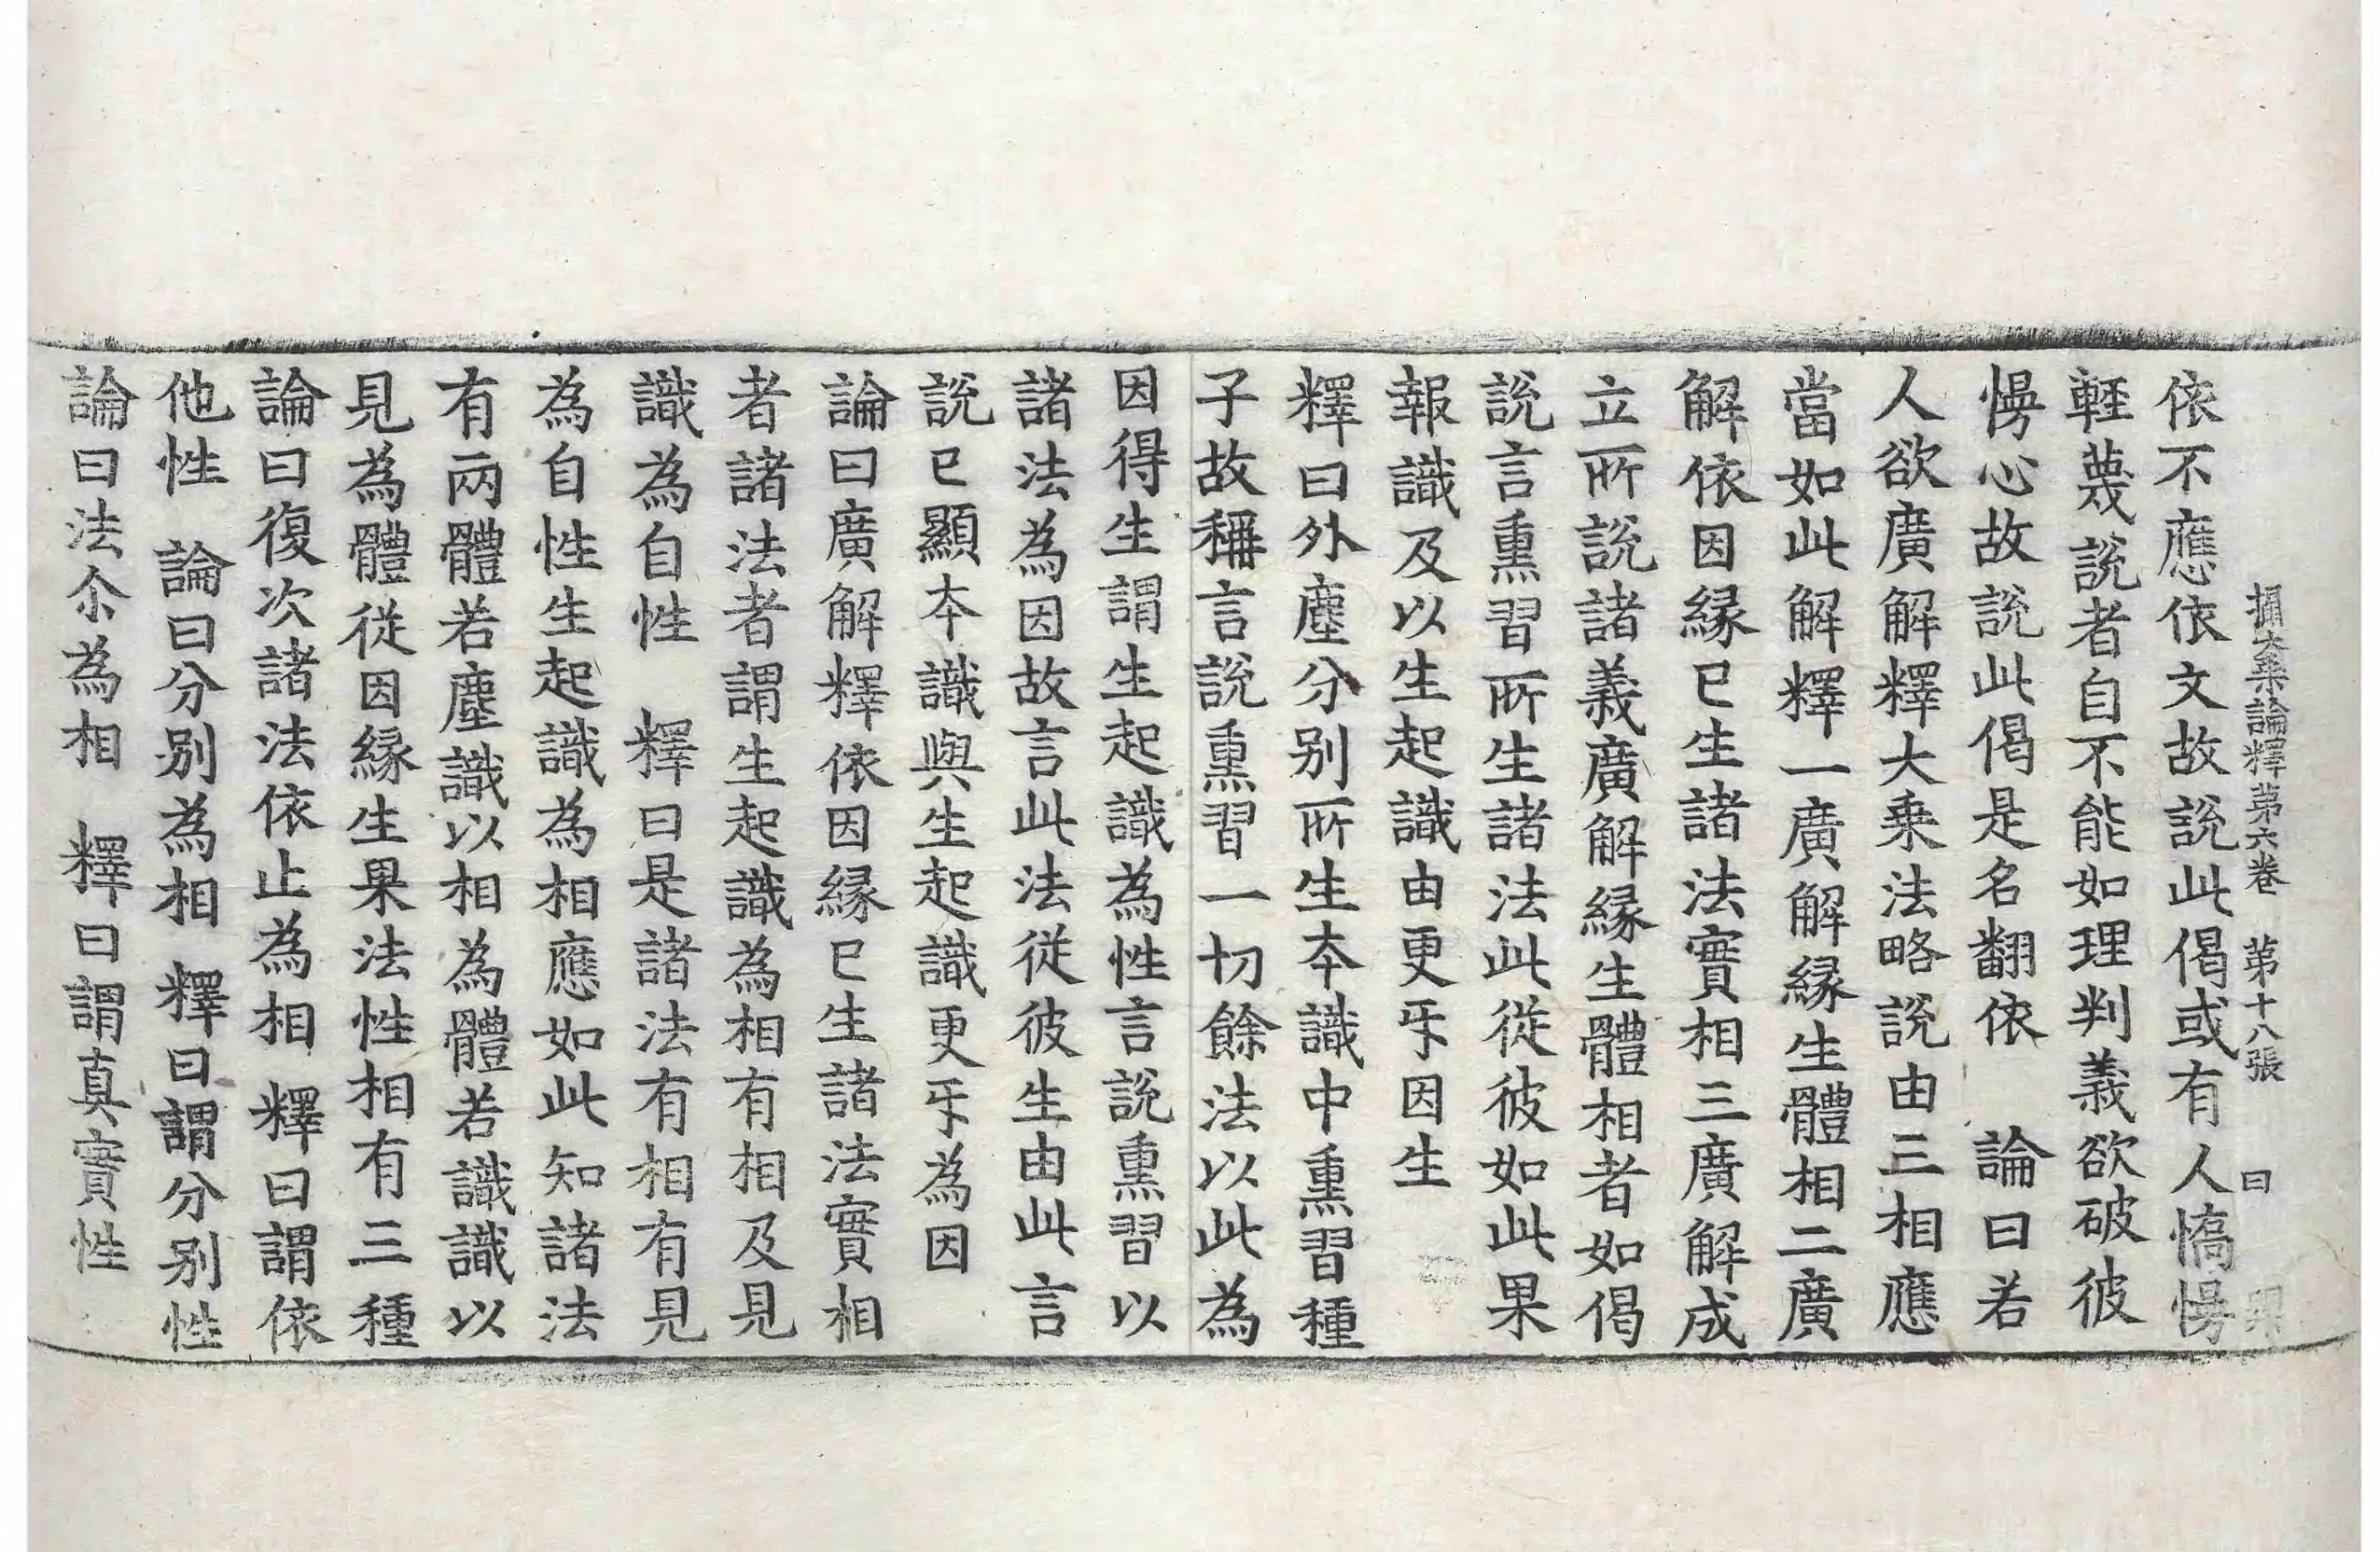 攝大乗論釋苐六卷　苐十八張　曰
依不應依文故說此偈或有人憍慢
輕蔑說者自不能如理判義欲破彼
慢心故說此偈是名翻依　論曰若
人欲廣解釋大乗法略說由三相應
當如此解釋一廣解縁生體相二廣
解依因縁已生諸法實相三廣解成
立所說諸義廣解縁生體相者如偈
說言熏習所生諸法此從彼如此果
報識及以生起識由更牙因生
釋曰外塵分别所生本識中熏習種
子故稱言說熏習一切餘法以此為
因得生謂生起識為性言說熏習以
諸法為因故言此法從彼生由此言
說已顯本識與生起識更牙為因
論曰廣解釋依因縁已生諸法實相
者諸法者謂生起識為相有相及見
識為自性　釋曰是諸法有相有見
為自性生起識為相應如此知諸法
有兩體若塵識以相為體若識識以
見為體從因縁生果法性相有三種
論曰復次諸法依止為相　釋曰謂依
他性　論曰分别為相　釋曰謂分别性
論曰法尒為相　釋曰謂真實性